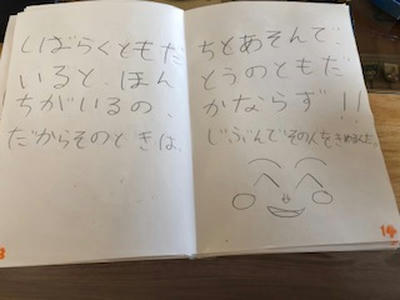 しばらくともだちとあそんで、
いると、ほんとうのともだ
ちがいるの、かならず!!
だからそのときは、じぶんでその人をきめるんだ。
3 14